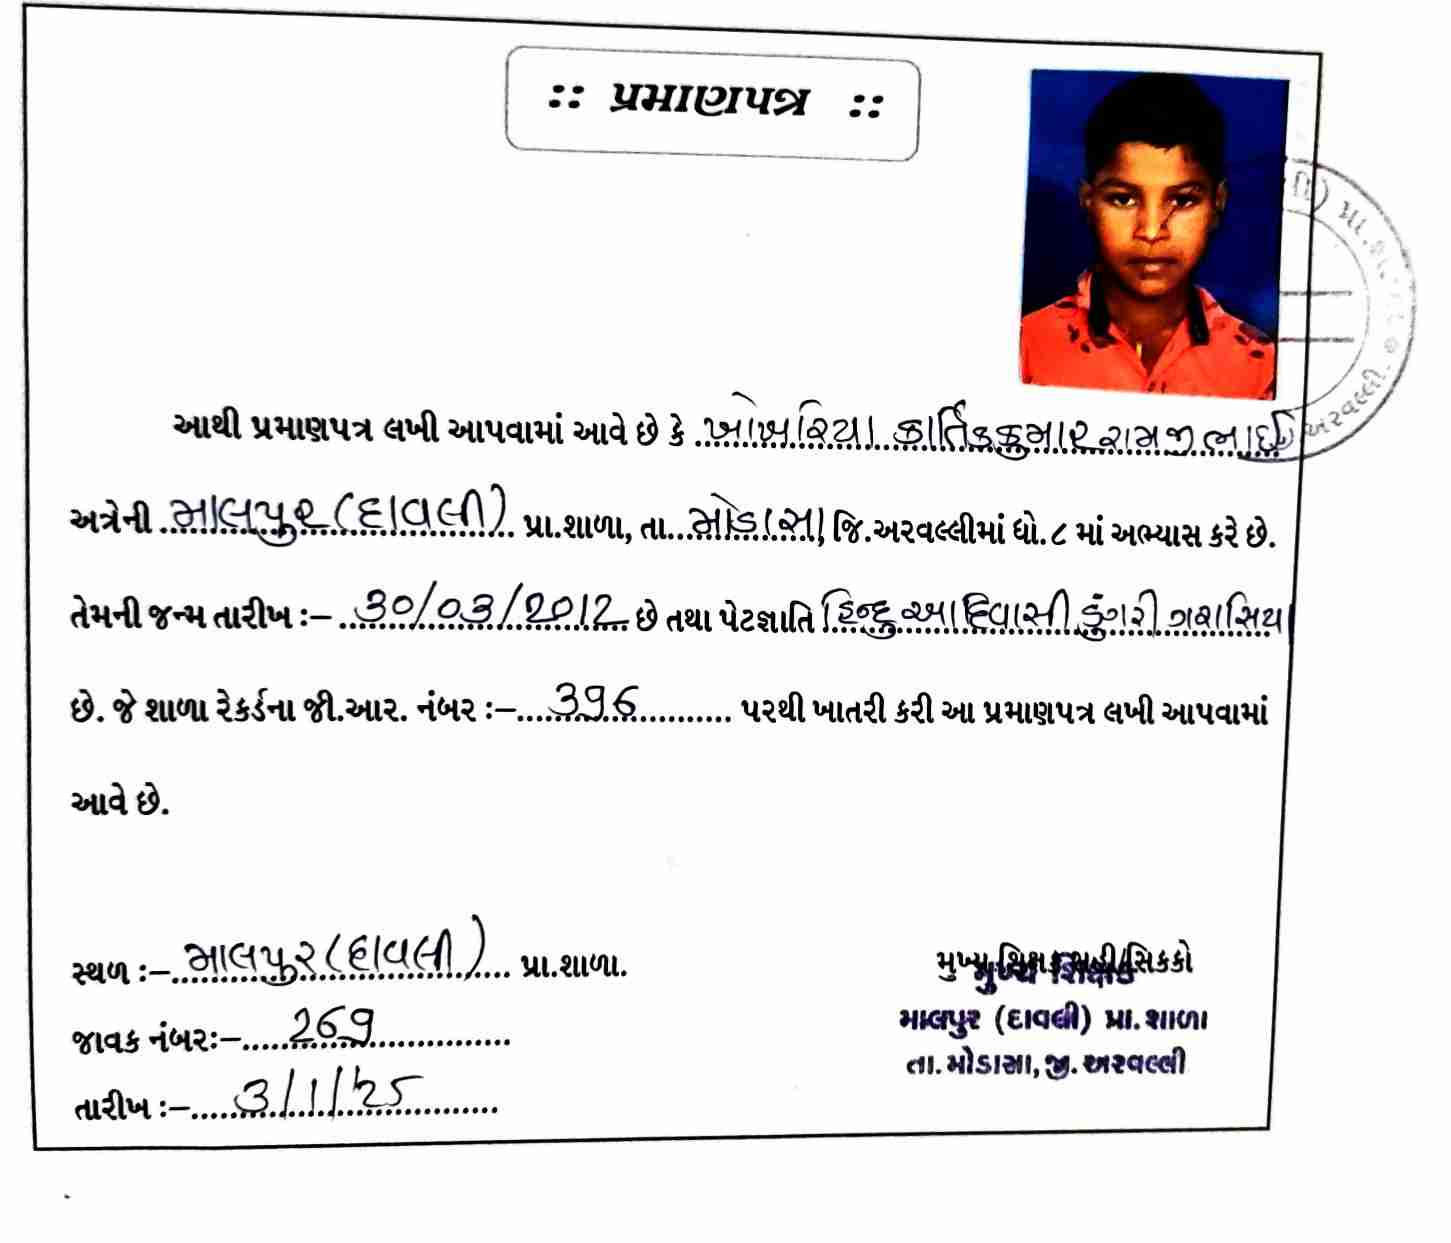 :: પ્રમાણપત્ર ::
આથી પ્રમાણપત્ર લખી આપવામાં આવે છે કે ખોખરિયા કાર્તિકકુમાર રામજીભાઇ
અત્રેની માલપુર (દાવલી) પ્રા.શાળા, તા. મોડાસા જિ.અરવલ્લીમાં ધો.૮ માં અભ્યાસ કરે છે.
તેમની જન્મ તારીખ :- 30/03/2012 છે તથા પેટજ્ઞાતિ હિન્દુ આદિવાસી ડુંગરી ગરાસિયા
છે. જે શાળા રેકર્ડના જી.આર. નંબર :- 396 પરથી ખાતરી કરી આ પ્રમાણપત્ર લખી આપવામાં
આવે છે.
સ્થળ :- માલપુર (દાવલી) પ્રા.શાળા.
જાવક નંબર:- 269
તારીખ :- 3/1/'25
મુખ્ય શિક્ષક સહી/સિકકો
મુખ્ય શિક્ષક
માલપુર (દાવલી) પ્રા.શાળા
તા.મોડાસા,જી.અરવલ્લી
અરવલ્લી.